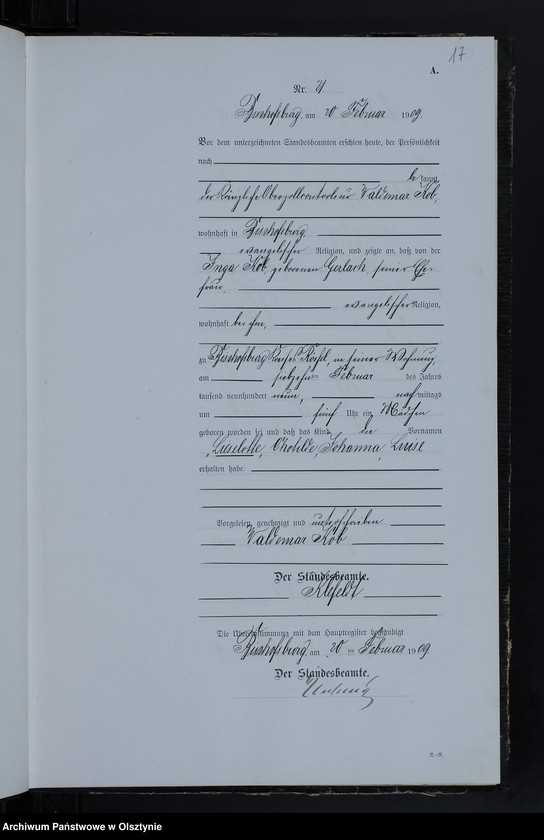 17
A.
Nr. 21
Bischofsburg, am 20 Februar 1909.
Vor dem unterzeichneten Standesbeamten erschien heute, der Persönlichkeit
nach
be kannt,
der Königliche Oberzollkontroleur Waldemar Kob,
wohnhaft in Bischofsburg,
evangelischer Religion, und zeigte an, daß von der
Inga Kob geborenen Gerlach, seiner Ehe-
frau,
evangelischer Religion,
wohnhaft bei ihm,
zu Bischofsburg Röchel, in seiner Wohnung,
am siebzehnten Februar des Jahres
tausend neunhundert neun, nachmittags
um fünf Uhr ein Mädchen
geboren worden sei und daß das Kind die Vornamen
Lieselotte, Johanna, Luise
erhalten habe.
Vorgelesen, genehmigt und unterschrieben
Waldemar Kob
Der Standesbeamte.
Klefeldt
Die Übereinstimmung mit dem Hauptregister beglaubigt
Bischofsburg, am 20 ten Februar 1909
Der Standesbeamte.
Archiwum Państwowe w Olsztynie